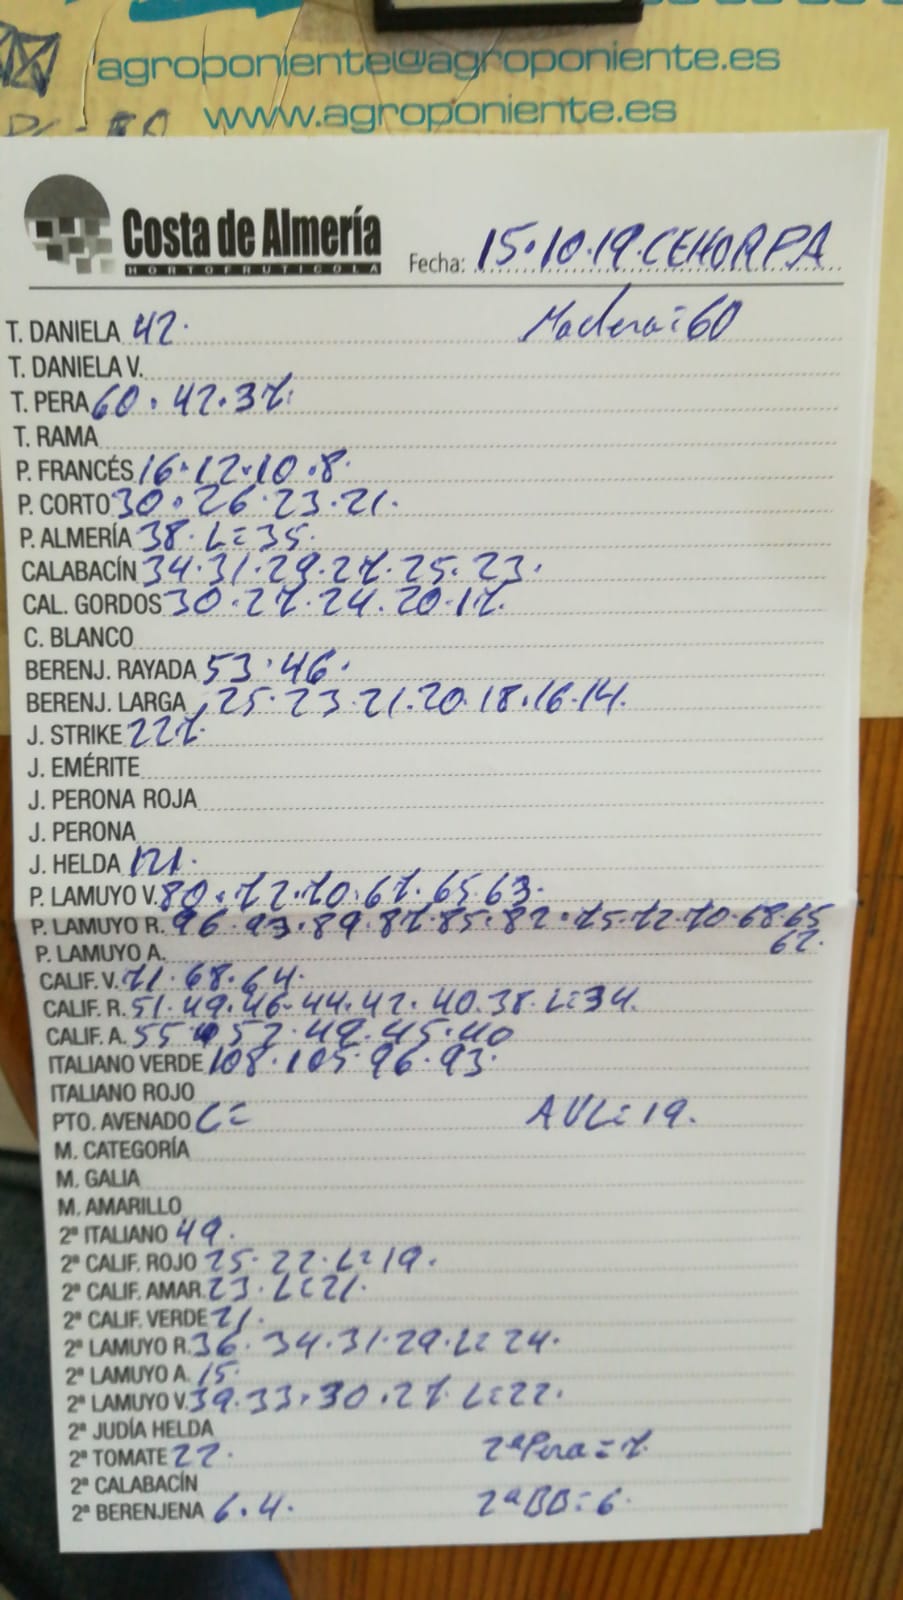 agroponiente@agroponiente.es
www.agroponiente.es
Costa de Almería
HORTOFRUTICOLA
Fecha: 15.10.19.CEHORPA
T. DANIELA 42. Madera=60
T. DANIELA V.
T. PERA 60.42.37.
T. RAMA
P. FRANCÉS 16.12.10.8.
P. CORTO 30.26.23.21.
P. ALMERÍA 38.L=35.
CALABACÍN 34.31.29.27.25.23.
CAL. GORDOS 30.27.24.20.17.
C. BLANCO
BERENJ. RAYADA 53.46.
BERENJ. LARGA 25.23.21.20.18.16.14.
J. STRIKE 227.
J. EMÉRITE
J. PERONA ROJA
J. PERONA
J. HELDA 121.
P. LAMUYO V. 80.72.70.67.65.63.
P. LAMUYO R. 96.93.89.87.85.82.75.72.70.68.65
P. LAMUYO A. 62.
CALIF. V. 71.68.64.
CALIF. R. 51.49.46.44.42.40.38.L=34.
CALIF. A. 55.52.49.45.40
ITALIANO VERDE 108.105.96.93.
ITALIANO ROJO
PTO. AVENADO C= AVL=19.
M. CATEGORÍA
M. GALIA
M. AMARILLO
2ª ITALIANO 49.
2ª CALIF. ROJO 25.22.L=19.
2ª CALIF. AMAR. 23.L=21.
2ª CALIF. VERDE 21.
2ª LAMUYO R. 36.34.31.29.L=24.
2ª LAMUYO A. 15.
2ª LAMUYO V. 39.33.30.27.L=22.
2ª JUDÍA HELDA
2ª TOMATE 22. 2ªPera=7.
2ª CALABACÍN
2ª BERENJENA 6.4. 2ªBB=6.